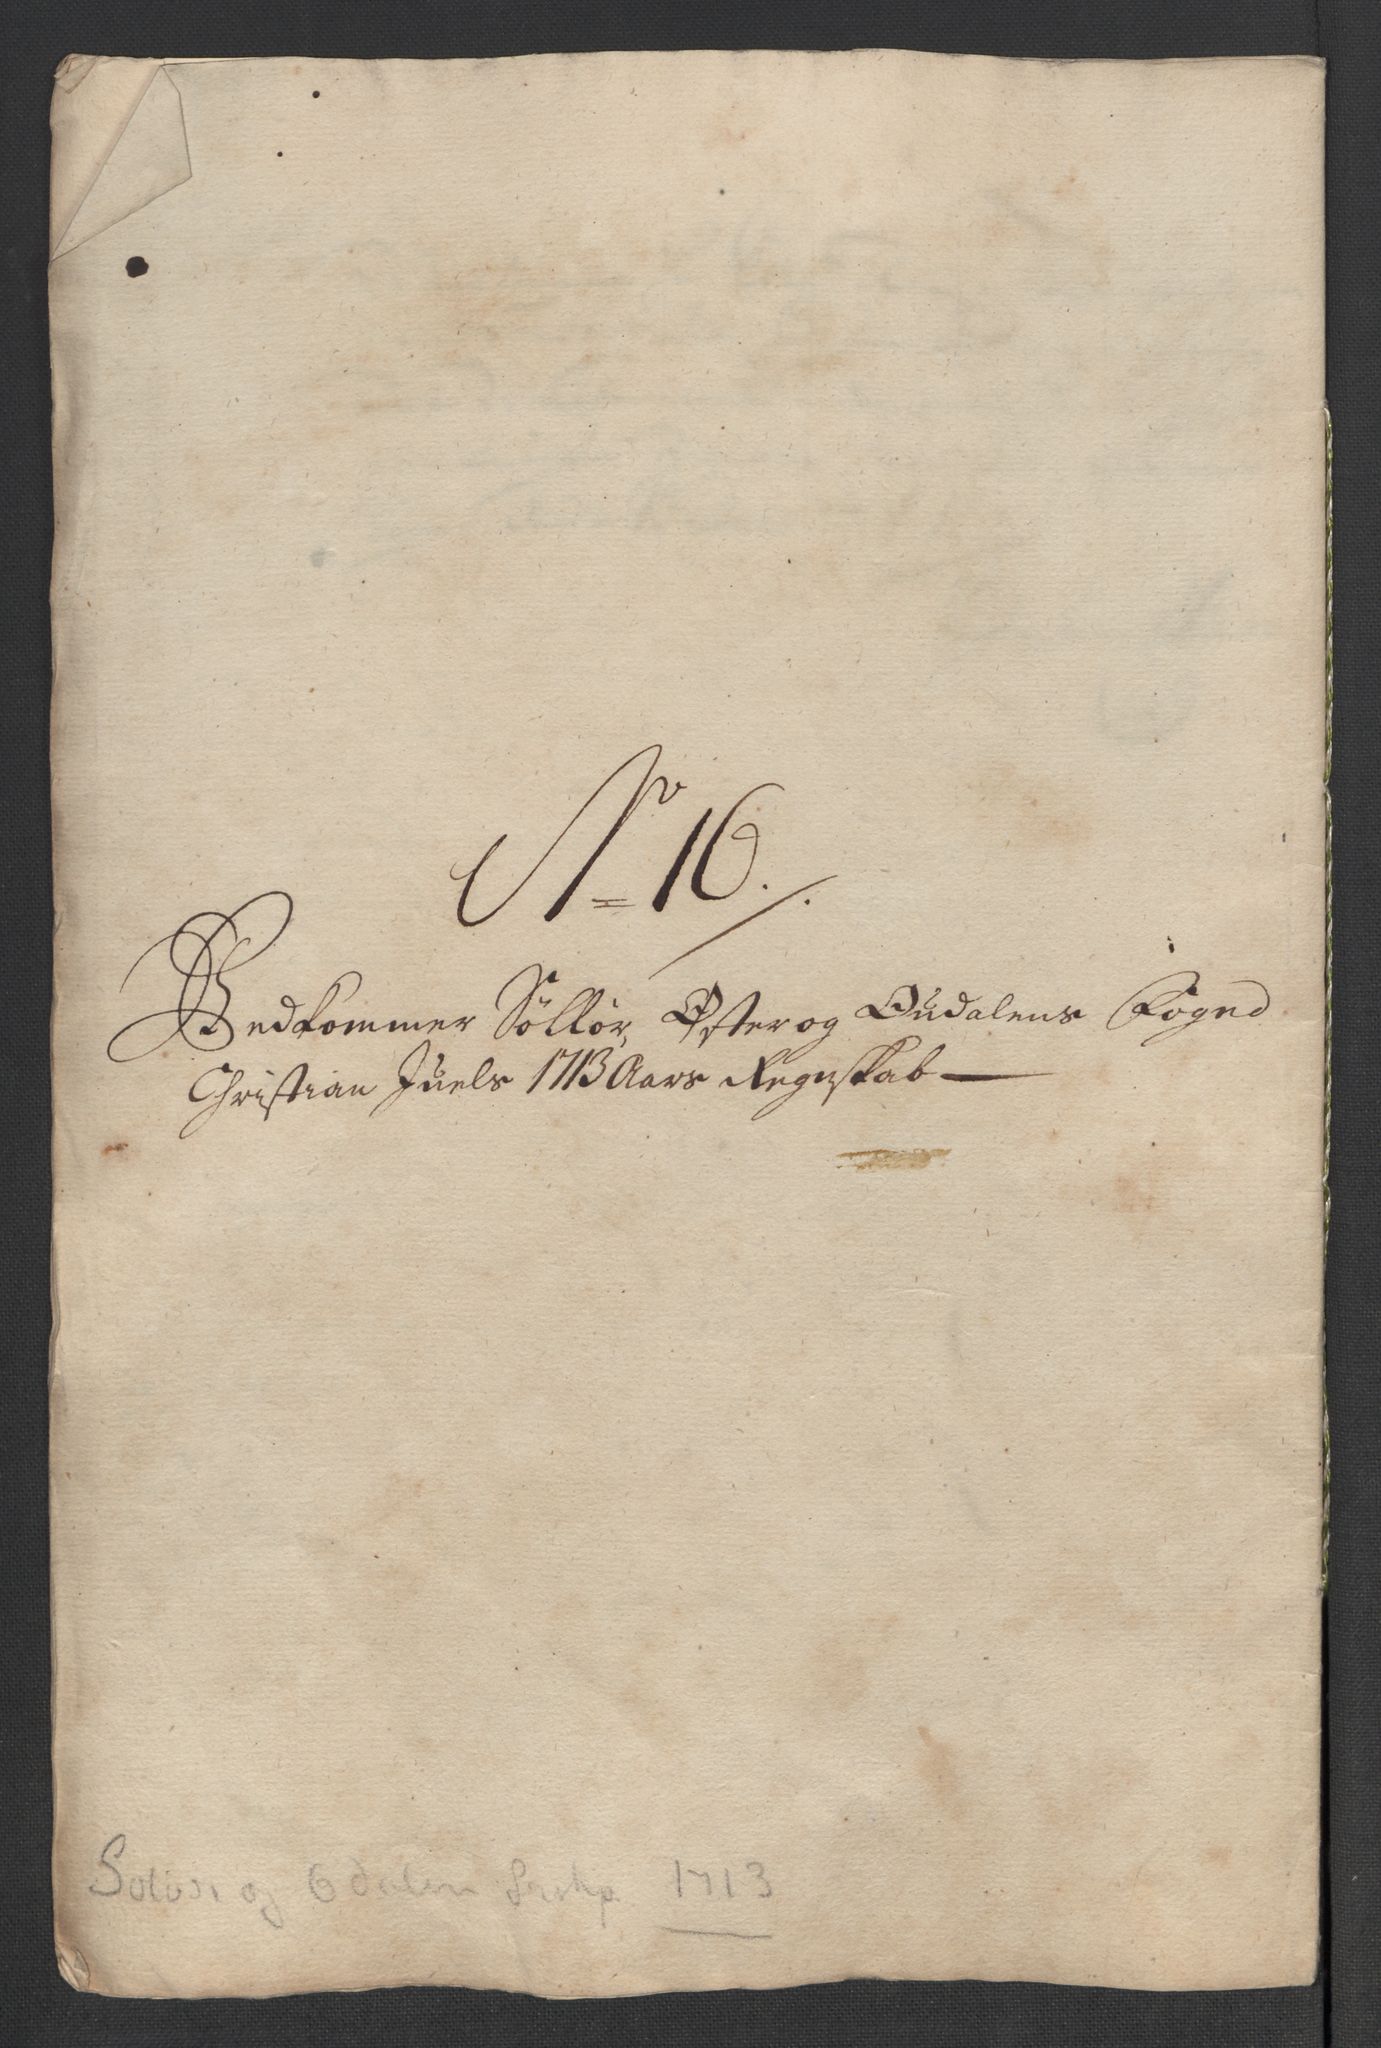 No 16.
Vedkommer Söllör, Öster og Oudalens Foged
Christian Juels 1713 Aars Regnskab
Solör og Odalen 1713